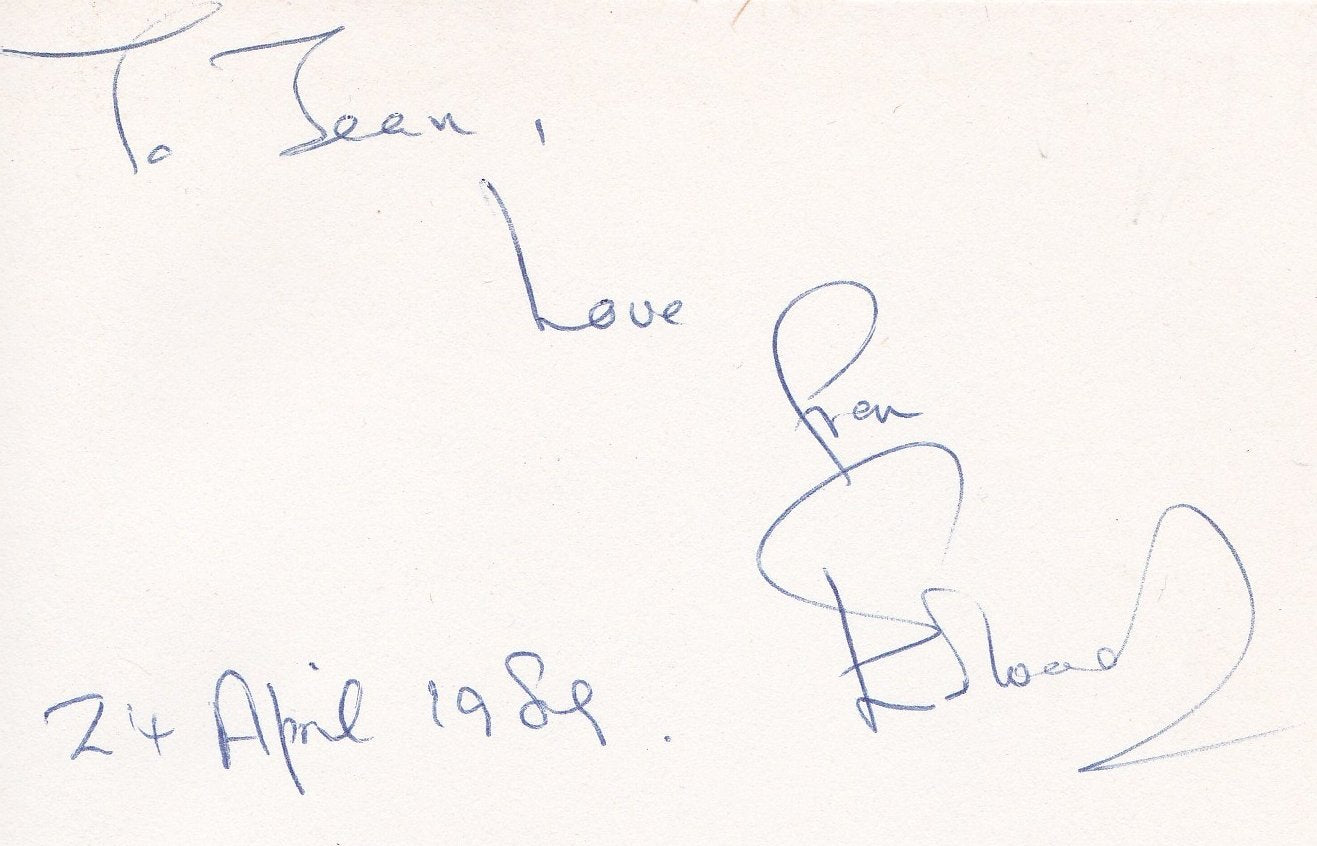 To Jean,
Love
from
24 April 1989.